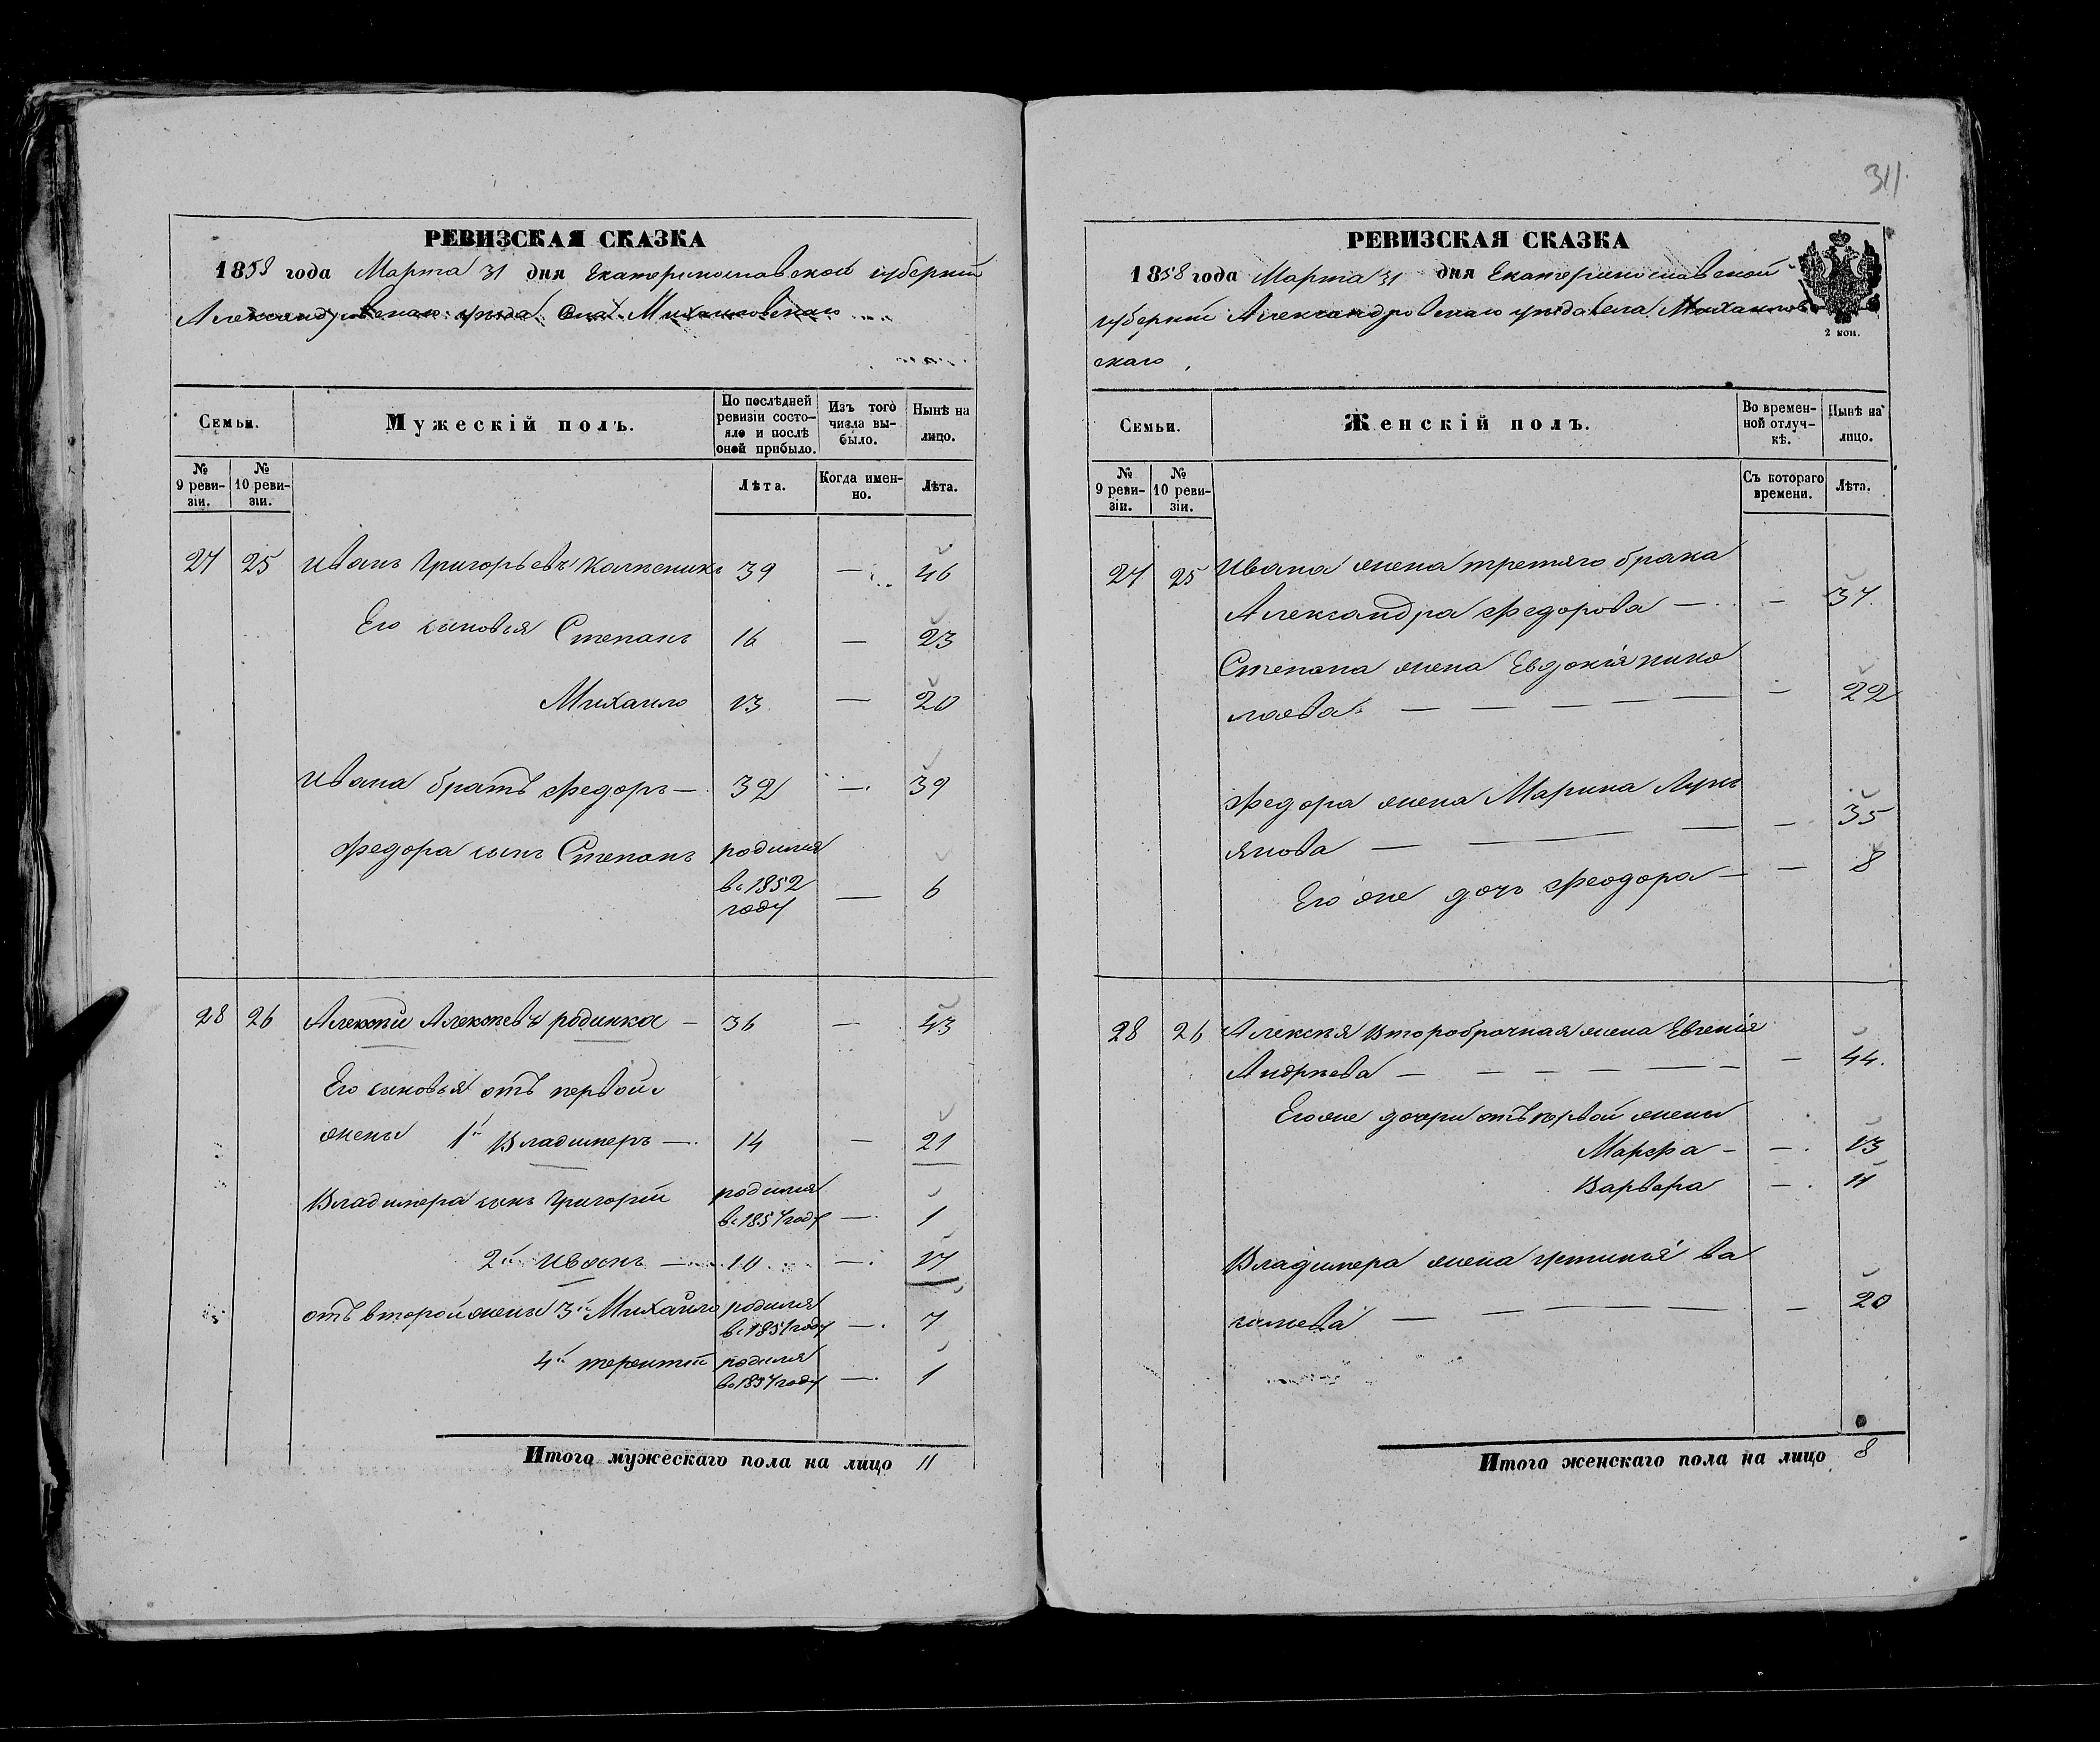 311
РЕВИЗСКАЯ СКАЗКА
1858 года Марта 31 дня Екатеринославской губернии
Александровскаго уезда села Михайловскаго
Семьи.
Мужескій полъ.
По послѣдней ревизіи состо-
яло и послѣ оной прибыло.
Изъ того числа вы-
было.
Нынѣ на лицо.
№ 9 реви-
зіи.
№ 10 реви-
зіи.
Лѣта.
Когда имен-
но.
Лѣта.
27 25 Иванъ Григорьевъ 39 — 46
Его сыновья Степанъ 16 — 23
Михаило 13 — 20
Ивана братъ Федоръ — 32 — 39
Федора сынъ Степанъ родился
въ 1852 — 6
году
28 26 Алексѣй Алексѣевъ родинка — 36 — 43
Его сыновья отъ первой
жены 1й Владимеръ — 14 — 21
Владимера сынъ Григорій родился
въ 1857 году — 1
2й Иванъ — 10 — 17
отъ второй жены 3й Михаило родился
въ 1851 году — 7
4й терентій родился
въ 1857 году — 1
Итого мужескаго пола на лицо 11
РЕВИЗСКАЯ СКАЗКА
1858 года Марта 31 дня Екатеринославской
губерніи Александровскаго уезда села Михайлов
скаго
2 коп.
Семьи.
Женскій полъ.
Во времен-
ной отлуч-
кѣ.
Нынѣ на лицо.
№ 9 реви-
зіи.
№ 10 реви-
зіи.
Съ котораго времени.
Лѣта.
27 25 Ивана жена третяго брака
Александра Федорова — — 37.
Степана жена Евдокія нико
лаева — — — — — — 22
Федора жена Марина Лукь
янова — — — — — 35
Его же дочь Феодора — — 8
28 26 Алексѣя второбрачная жена Евгенія
Андрѣева — — — — — — — 44.
Его же дочери отъ первой жены
Марфа — — 13
Варвара — 11
Владимера жена устинья ва
— — — — — — 20
Итого женскаго пола на лицо 8